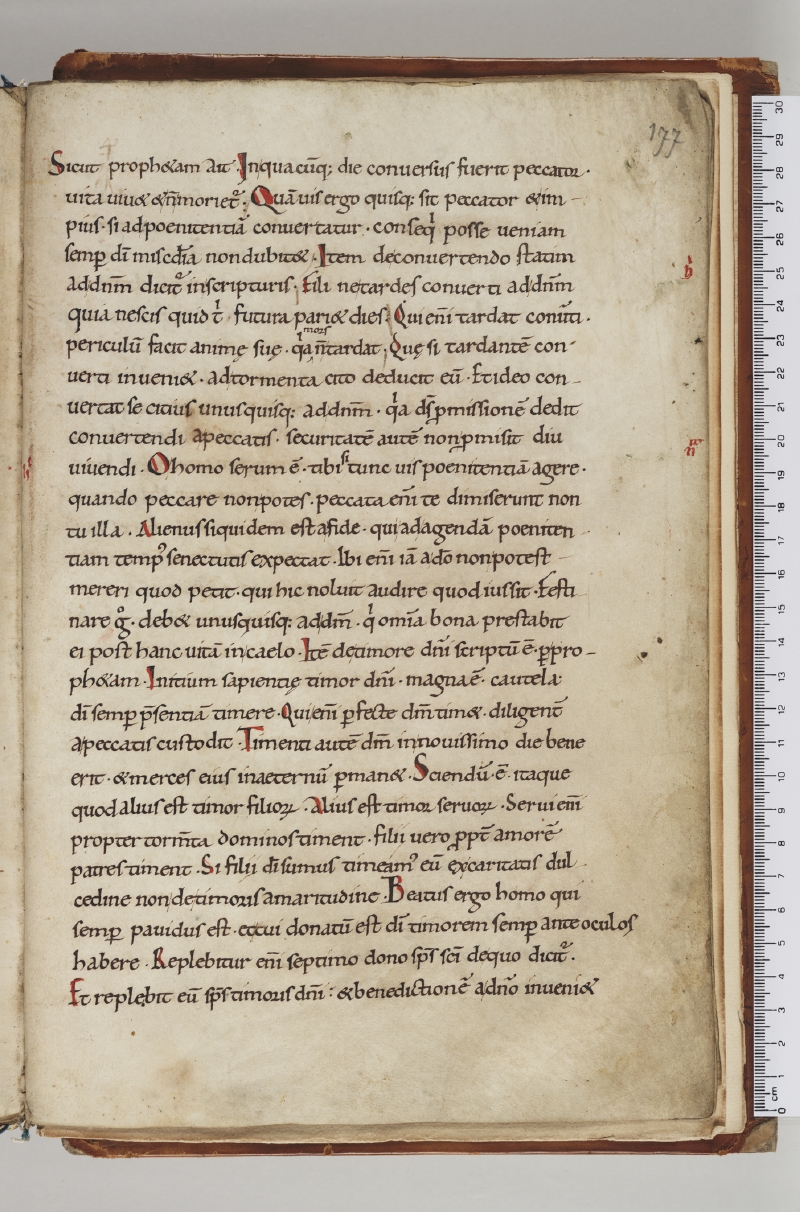 177
Sicut proph&am Ait. Inquacūq; die conuersus fuerit peccator.
uita uiu& & n̄ moriet᷑. Quāuis ergo quisq; sit peccator & im-
pius. si adpoenitentiā conuertatur. conseq̇ posse ueniam
semp̱ dī miscdīā nondubit&. Item deconuertendo statim
addnm̄ dicit᷑ inscripturis. Fili netardes conuerti addnm̄
quia nescis quid futura pari& dies. Qui enī tardat conūti.
mors
periculū facit animę suę. qȧ n̄ tardat. Quę si tardantē con-
uerti inueni&. adtormenta cito deducit eū. Et ideo con-
uertat se citius unusquisq; addnm̄. qȧ ds̄ p̱missionē dedit
conuertendi apeccatis. securitatē autē non p̱misit diu
uiuendi. O homo serum ē. tibi si tunc uis poenitentiā agere.
quando peccare nonpotes. peccata enī te dimiserunt non
tu illa. Alienus siquidem est afide. qui adagendā poeniten-
tiam temp᾽ senectutis expectat. Ibi enī iā adō nonpotest
mereri quod petit. qui hic noluit audire quod iussit. Festi
nare g̊. deb& unusquisq; addm̄. q̇ omīa bona prestabit
ei post hanc uitā in caelo. Itē detimore dnī scriptū ē. p̱ pro-
ph&am. Initium sapientię timor dnī. magna ē. cautela
dī semp̱ p̄sentiā timere. Qui enī p̱fecte dm̄ tim&. diligent̄
apeccatis custodit. Timenti autē dm̄ innouissimo die bene
erit. & merces eius inaeternū p̱man&. Sciendū. ē. itaque
quod alius est timor filioꝝ. Alius est timor seruoꝝ. Serui enī
propter torm̄ta dominos timent. filii uero ꝓpt̄ amorē
patres timent. Si filii dī sumus timeam᾽ eū ex caritatis dul
cedine non de timoris amaritudine. Beatus ergo homo qui
semp̱ pauidus est. et cui donatū est dī timorem semp̱ ante oculos
habere. Replebitur enī septimo dono sps̄ scī dequo dicit᷑.
Et replebit eū sps̄ timoris dnī: & benedictionē adnō inueni&